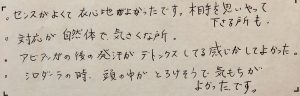 ・センスがよくて居心地がよかったです。相手を思いやって
下さる所も。
・対応が自然体で、気さくな所。
・アビアンガの後の発汗がデトックスしてる感じがしてよかった。
・シロダーラの時、頭の中がとろけそうで気もちが
よかったです。